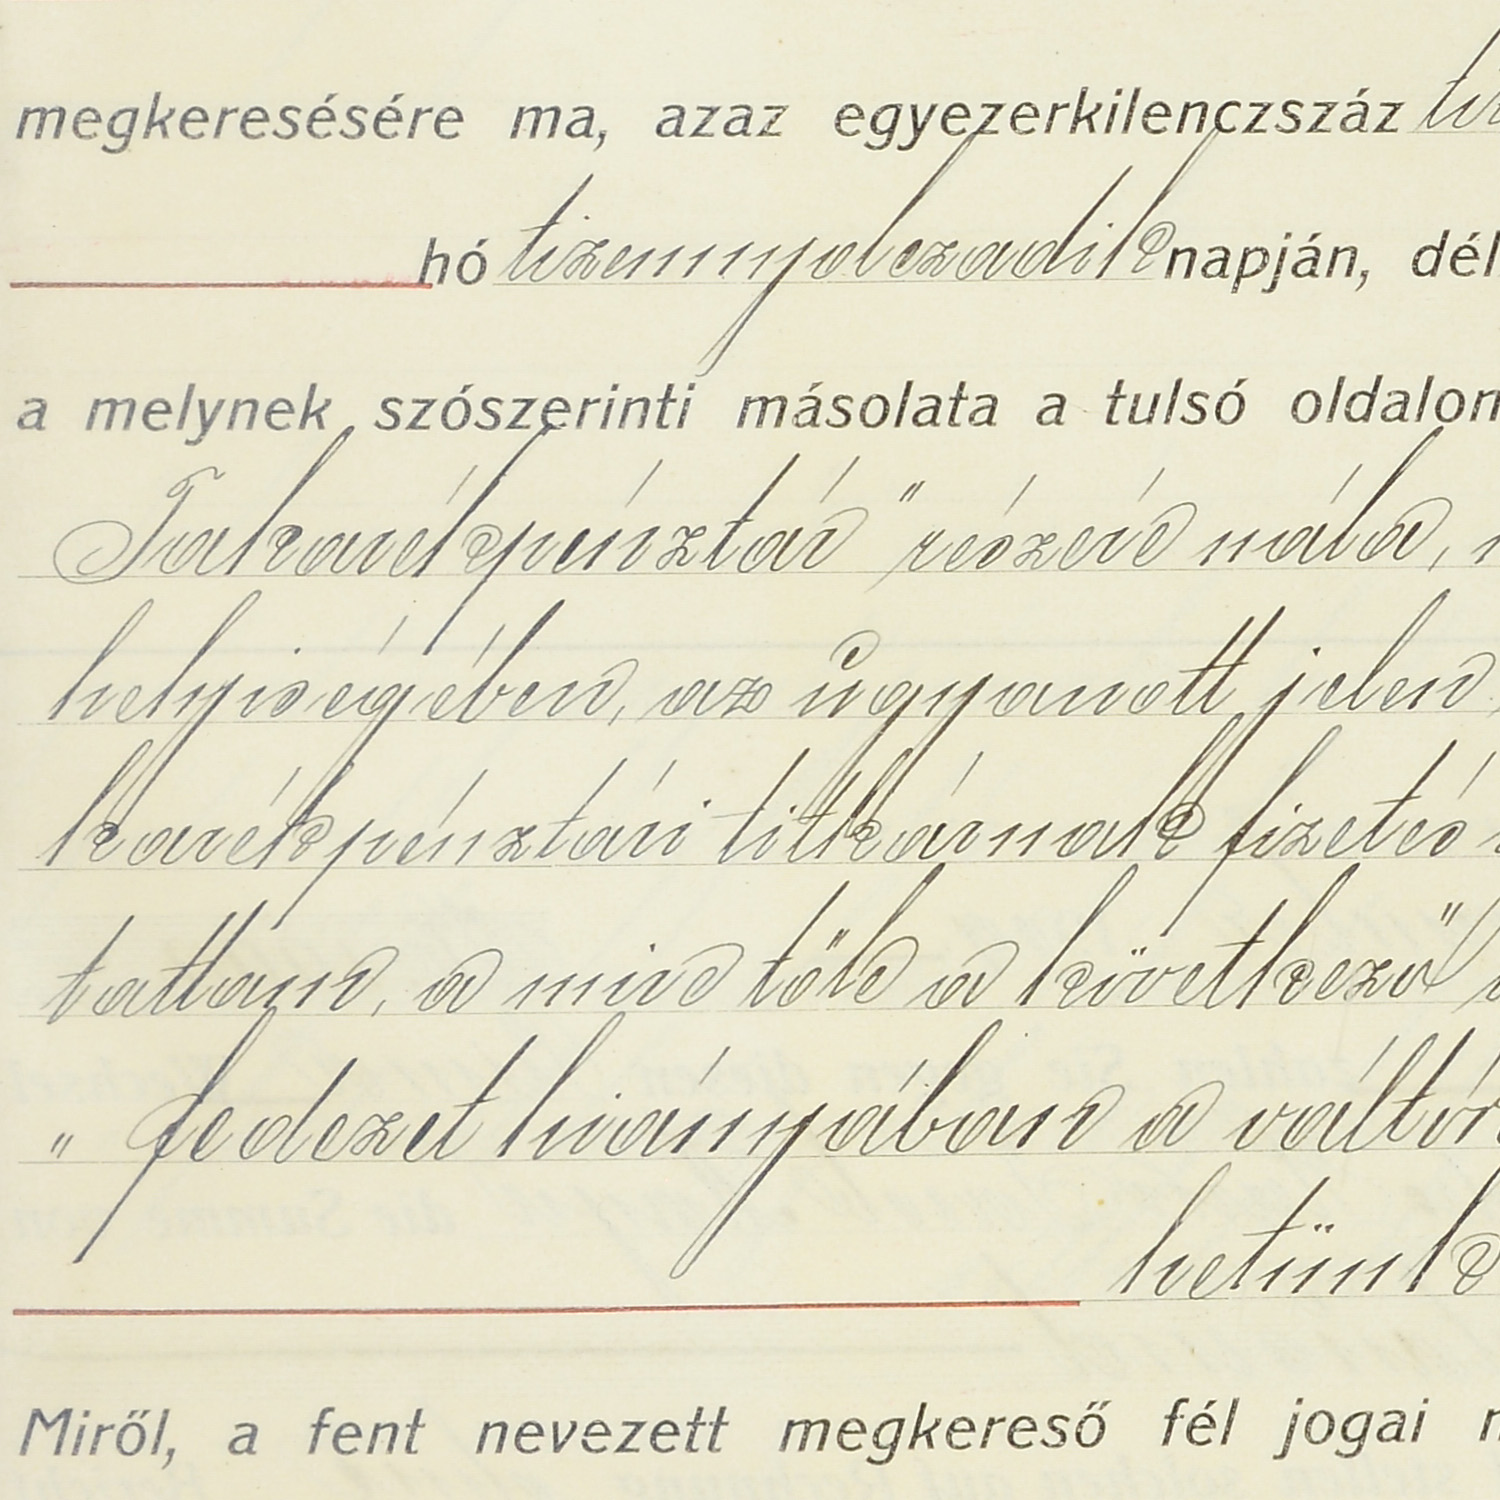 megkeresésére ma, azaz egyezerkilenczszáz
hó tizennyolczadik napján, dél
a melynek szószerinti másolata a tulsó oldalon
Takarékpénztár" részére nála,
helyiségében, az ugyanott jelen
karékpénztári titkárnak fizetés
tattam, a mire tőle a következő
" fedezet hiányában a váltó
hetünk
Miről, a fent nevezett megkereső fél jogai